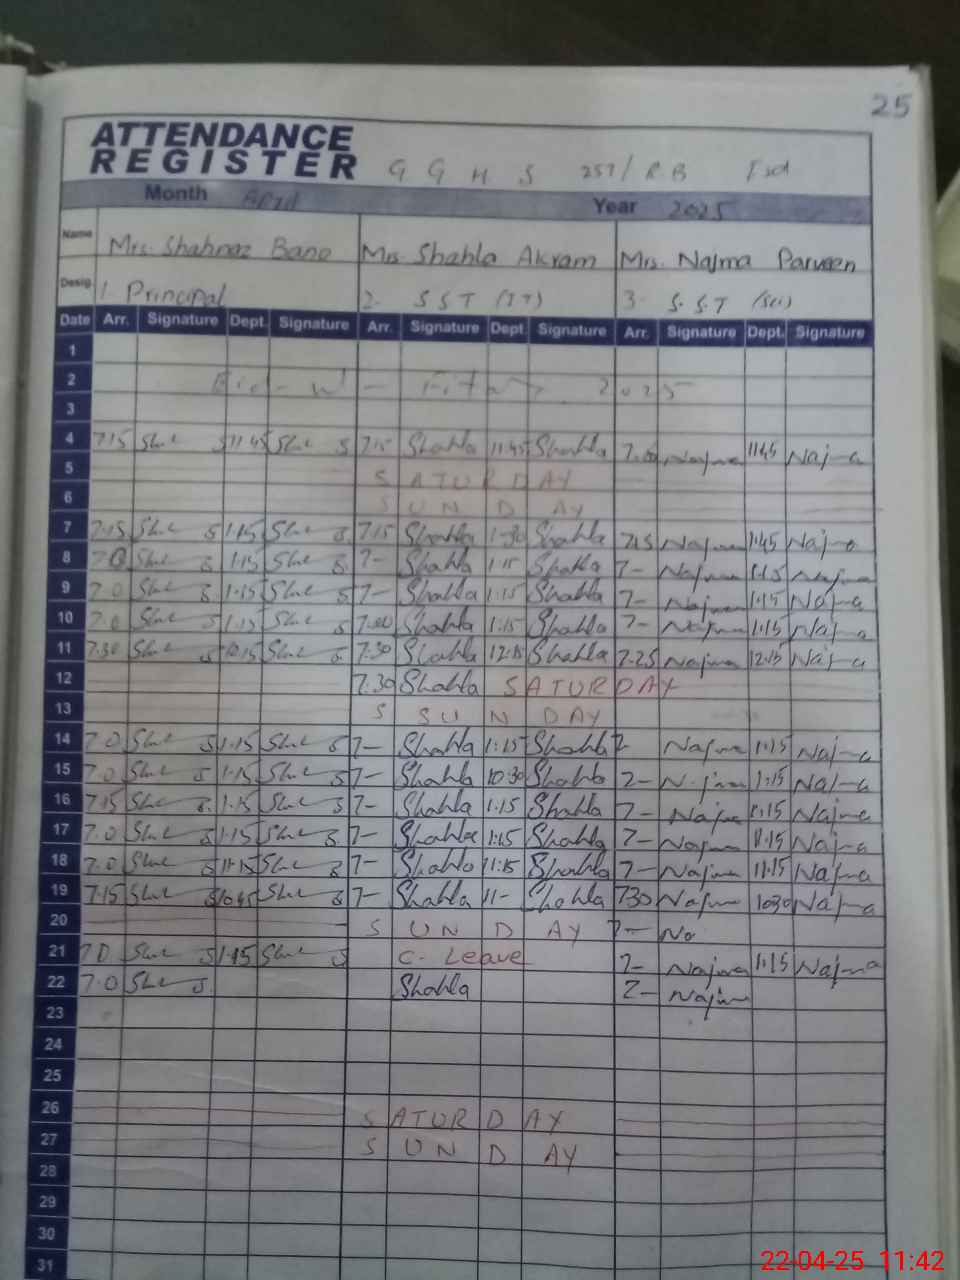 25
ATTENDANCE
REGISTER G G H S 257/RB Fsd
Month April Year 2025
Name Mrs. Shahnaz Bano Mrs Shahla Akram Mrs. Najma Parveen
Desig. 1. Principal 2. S S T (IT) 3. S.S.T (Sci)
Date Arr. Signature Dept. Signature Arr. Signature Dept. Signature Arr. Signature Dept. Signature
1
2 Eid-ul-Fitar 2025
3
4 7.15 11.45 7.15 Shahla 11.45 Shahla Najma 11.45 Najma
5 SATURDAY
6 SUNDAY
7 7.15 1.15 7.15 Shahla 1.30 Shahla 7.15 Najma 1.45 Najma
8 1.15 7- Shahla 1.15 Shahla 7- Najma 1.15 Najma
9 7.0 1.15 7- Shahla 1.15 Shahla 7- Najma 1.15 Najma
10 7.0 1.15 7.00 Shahla 1.15 Shahla 7- Najma 1.15 Najma
11 7.30 7.30 Shahla 12.15 Shahla 7.25 Najma 12.15 Najma
12 7.30 Shahla SATURDAY
13 S SUNDAY
14 7.0 1.15 7- Shahla 1.15 Shahla 7 Najma 1.15 Najma
15 7.0 1.15 7- Shahla 10.30 Shahla 7- Najma 1.15 Najma
16 7.15 1.15 7- Shahla 1.15 Shahla 7- Najma 1.15 Najma
17 7.0 1.15 7- Shahla 1.15 Shahla 7- Najma Najma
18 7.0 11.15 7- Shahla 11.15 Shahla 7- Najma 11.15 Najma
19 7.15 10.45 7- Shahla 11- Shahla 7.30 Najma 10.30 Najma
20 SUNDAY 7- Na
21 7.0 1.15 C. Leave 7- Najma 1.15 Najma
22 7.0 Shahla 7- Najma
23
24
25
26 SATURDAY
27 SUNDAY
28
29
30
31
22-04-25 11:42